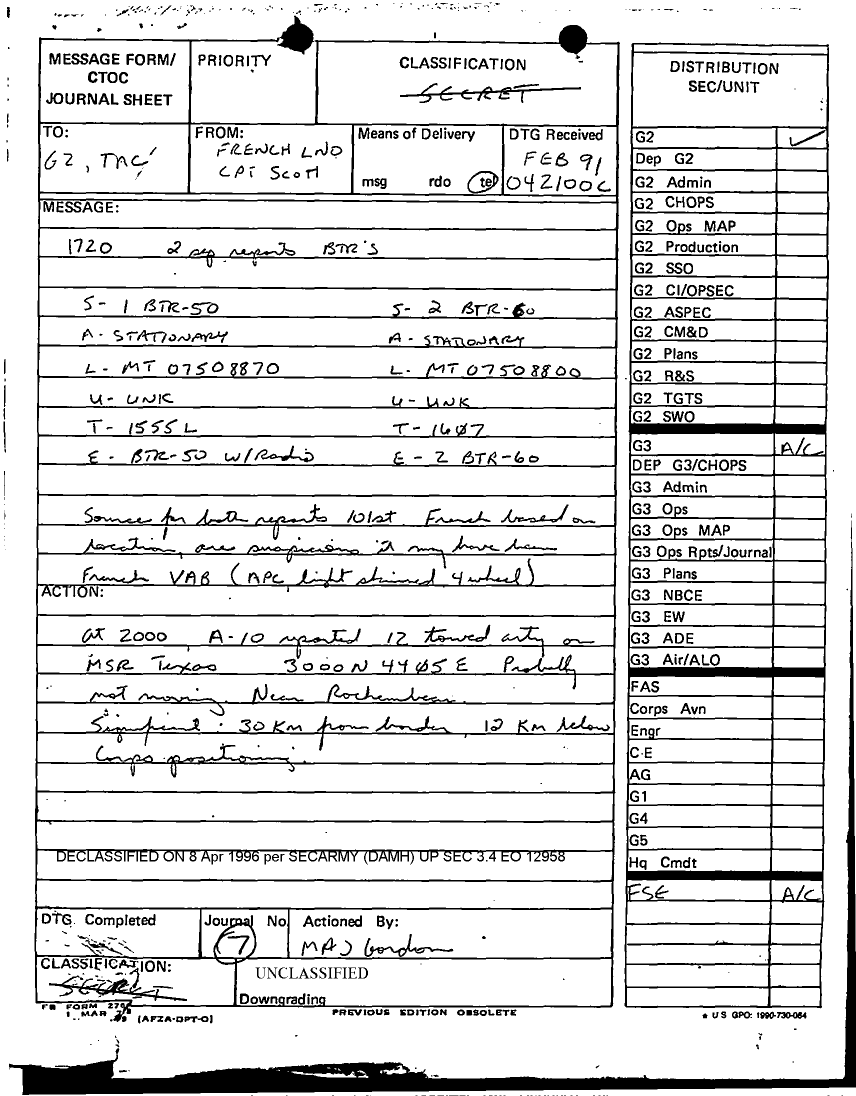 MESSAGE FORM/
CTOC
JOURNAL SHEET
PRIORITY
CLASSIFICATION
SECRET
TO:
G2, TAC
FROM:
FRENCH LNO
CPT Scott
Means of Delivery
msg rdo tel
DTG Received
FEB 91
042100C
MESSAGE:
1720 2 sep reports BTR'S
S- 1 BTR-50 S- 2 BTR-60
A- STATIONARY A- STATIONARY
L- MT 07508870 L- MT 07508800
U- UNK U- UNK
T- 1555L T- 1607
E- BTR-50 W/Radio E- 2 BTR-60
Source for both reports 101st. French based on
location, are suspicious it may have been
French VAB (APC, light skinned 4 wheel)
ACTION:
at 2000, A-10 reported 12 towed arty on
MSR Texas 3000N 4405E Probably
not moving. Near Rochembeau.
Significant: 30 KM from border, 12 KM below
Corps positioning.
DECLASSIFIED ON 8 Apr 1996 per SECARMY (DAMH) UP SEC 3.4 EO 12958
DTG Completed
Journal No
7
Actioned By:
MAJ Gordon
CLASSIFICATION:
SECRET
UNCLASSIFIED
Downgrading
FB FORM
1 MAR
(AFZA-DPT-O)
PREVIOUS EDITION OBSOLETE
DISTRIBUTION
SEC/UNIT
G2 ✓
Dep G2
G2 Admin
G2 CHOPS
G2 Ops MAP
G2 Production
G2 SSO
G2 CI/OPSEC
G2 ASPEC
G2 CM&D
G2 Plans
G2 R&S
G2 TGTS
G2 SWO
G3 A/C
DEP G3/CHOPS
G3 Admin
G3 Ops
G3 Ops MAP
G3 Ops Rpts/Journal
G3 Plans
G3 NBCE
G3 EW
G3 ADE
G3 Air/ALO
FAS
Corps Avn
Engr
C-E
AG
G1
G4
G5
Hq Cmdt
FSE A/C
★ U S GPO: 1990-730-064